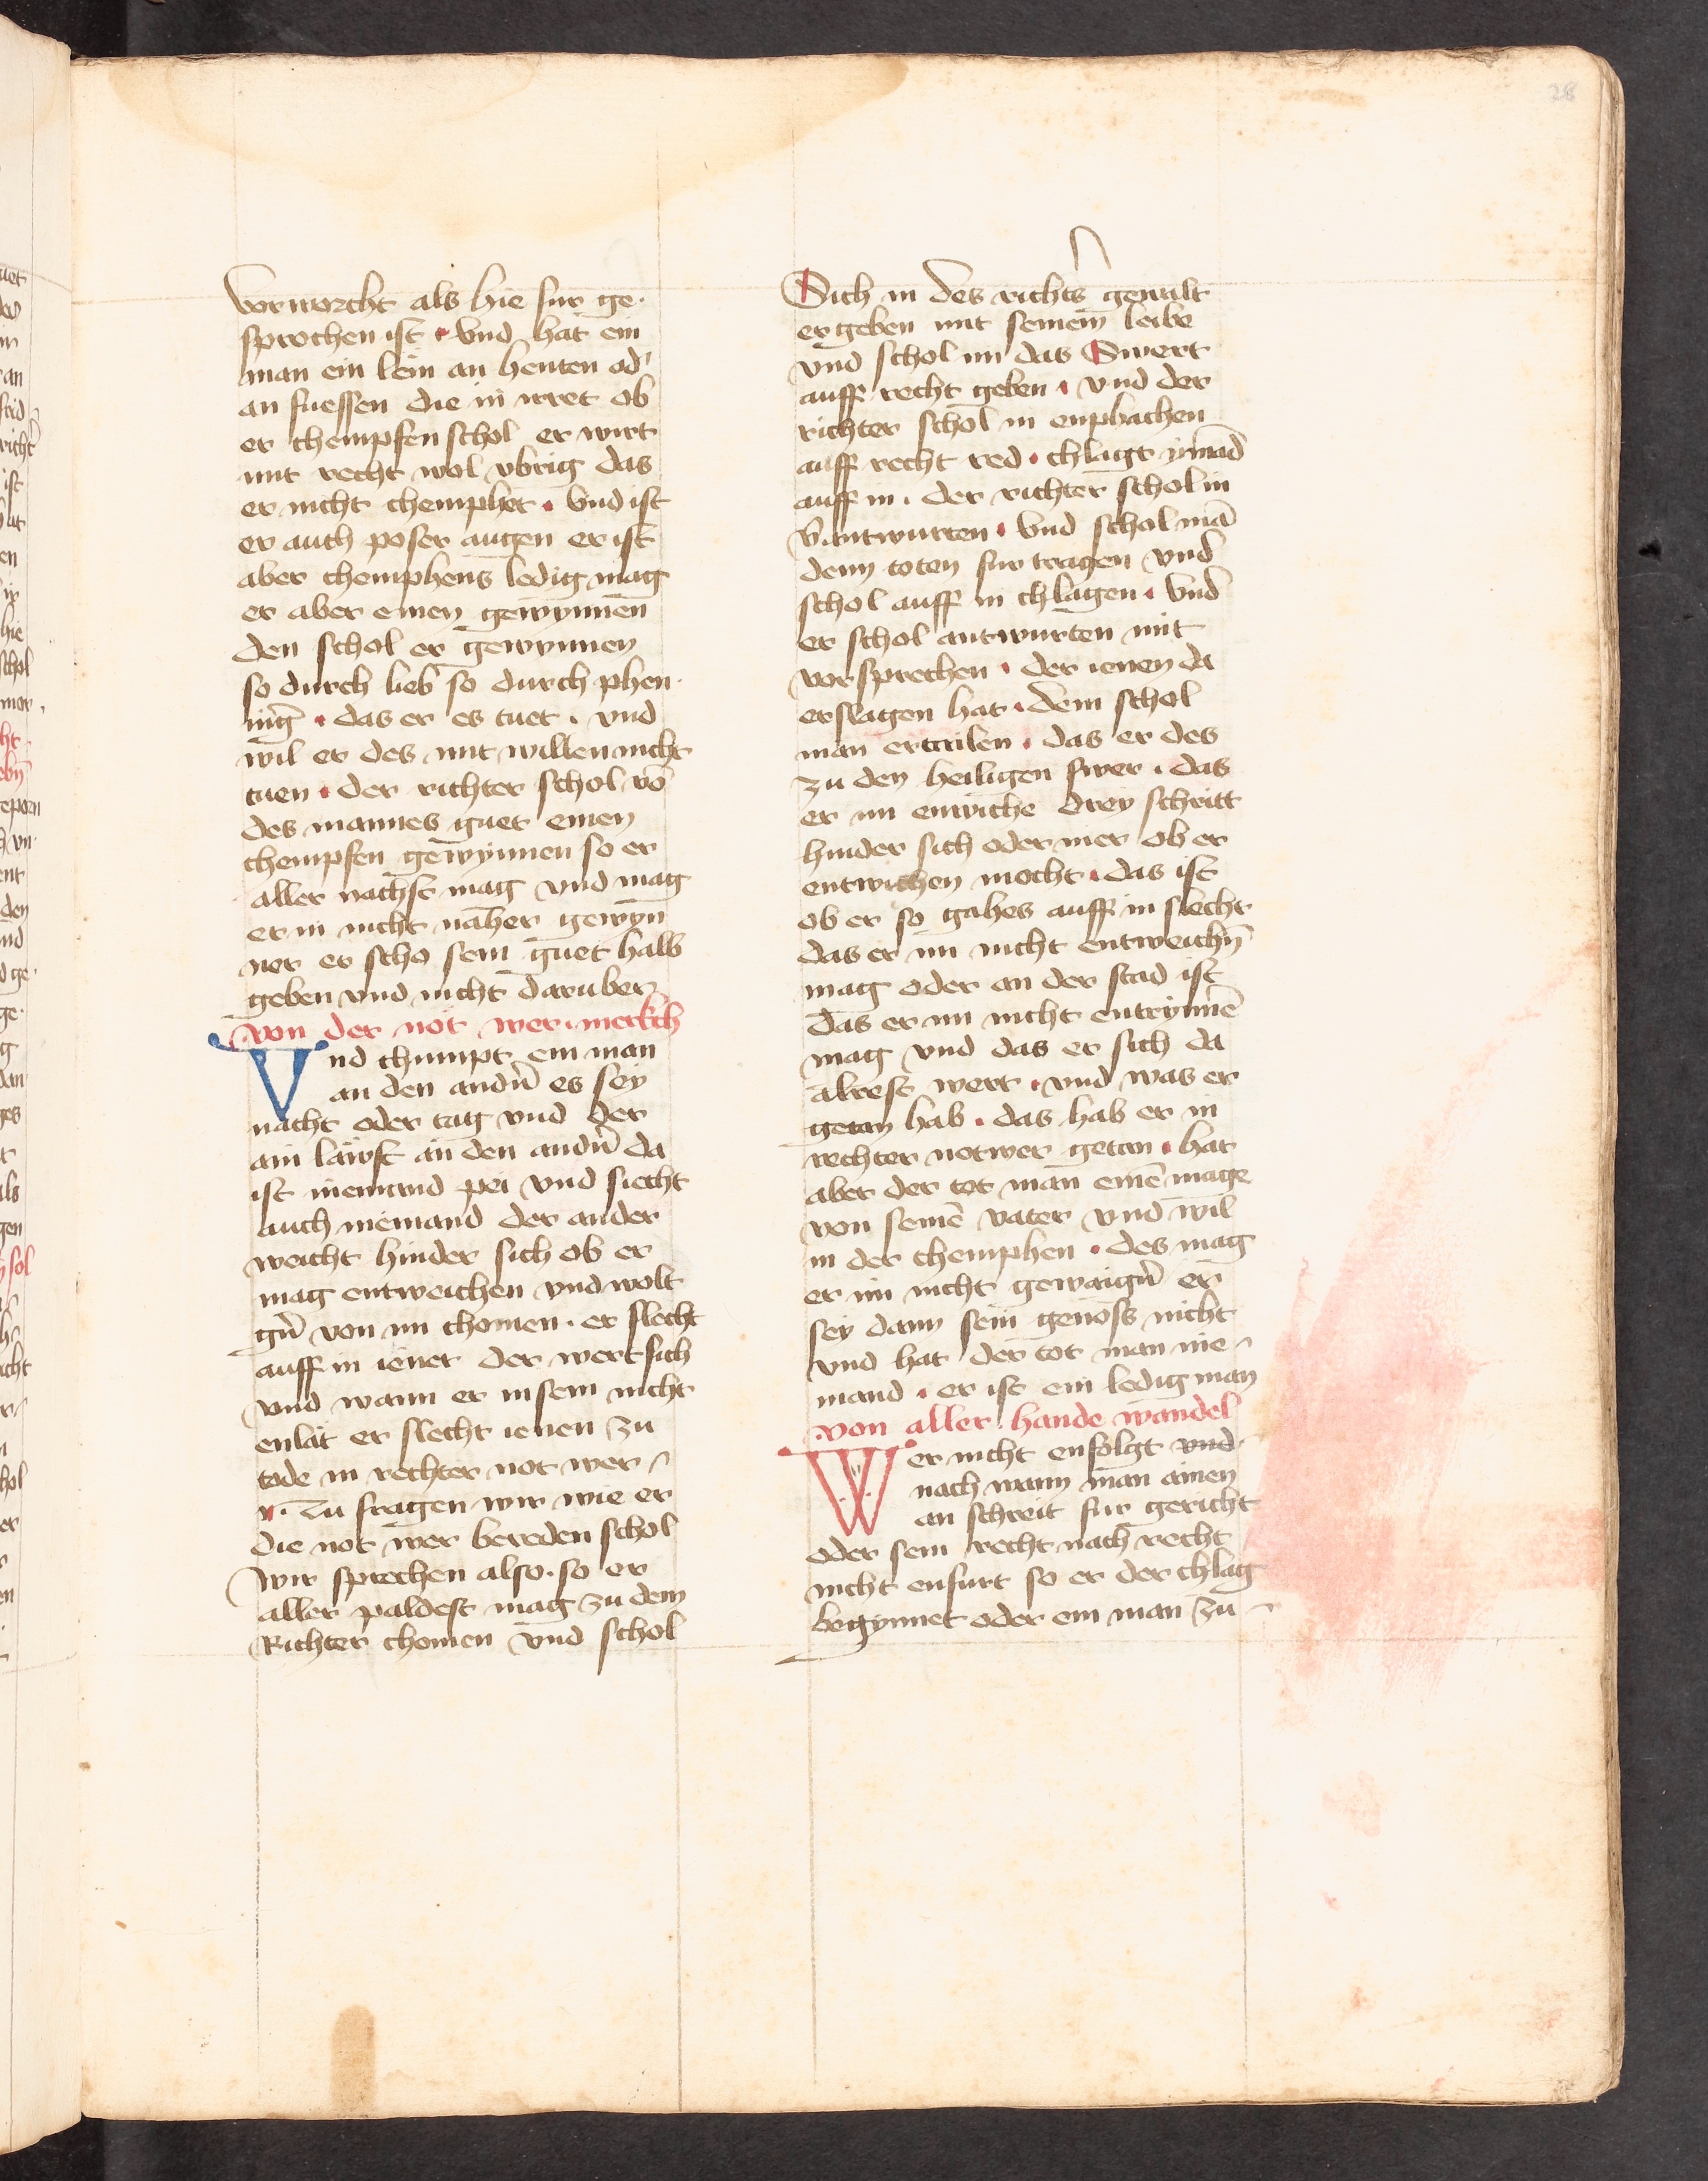 28
vorworcht als hie fur ge·
sprochen ist · vnd hat ein
man ein lem an henten od'
an fuessen die in irret ob
er chempfen schol er wirt
mit recht wol vbrig das
er nicht chemphet · vnd ist
er auch poser augen er ist
aber chemphens ledig mag
er aber einen gewynnen
den schol er gewynnen
so durch lieb so durch phen·
nīg · das er es tuet · vnd
wil er des mit willen nicht
tuen · der richter schol vō
des mannes guet einen
chempfen gewynnen so er
aller nachst mag vnd mag
er in nicht naher gewyn
ner er scho sein guet halb
geben vnd nicht daruber
von der not wer · merkch
Vnd chumpt ein man
an den andn̄ es sey
nacht oder tag vnd der
ain laüft an den andn̄ da
ist niemand pei vnd siecht
auch niemand der ander
weicht hinder sich ob er
mag entweichen vnd wolt
gn̄ von im chomen · er slecht
auff in iener der wert sich
vnd wann er in sein nicht
enlat er slecht ienen zu
tode in rechter not wer
Nu fragen wir wie er
die not wer bereden schol
wir sprechen also · so er
aller paldest mag zu dem
Richter chomen vnd schol
Sich in des richt's gewalt
ergeben mit seinem leibe
vnd schol im das Swert
auff recht geben · vnd der
richter schol in enphachen
auff recht red · chlagt ymād
auff in · der richter schol in
v̄antwurten · vnd schol mā
denn toten fur tragen vnd
schol auff in chlagen · vnd
er schol antwurten mit
vorsprechen · der ienen da
erslagen hat · dem schol
man ertailen · das er des
zu den heiligen swer · das
er im entwiche drey schritt
hinder sich oder mer ob er
entwichen mocht · das ist
ob er so gahes auff in slecht
das er im nicht entweichn̄
mag oder an der stad ist
das er im nicht entrynnē
mag vnd das er sich da
alrest wert · vnd was er
getan hab · das hab er in
rechter notwer getan · hat
aber der tot man einē mage
von seinē vater vnd wil
in der chemphen · des mag
er im nicht gewaign̄ er
sey dann sein genoss nicht
vnd hat der tot man nie
mand · er ist ein ledig man
von aller hande wandel
Wer nicht enfolgt vnd
nach wann man ainen
an schreit fur gericht
oder sein recht nach recht
nicht enfurt so er der chlag
begynnet oder ein man zu